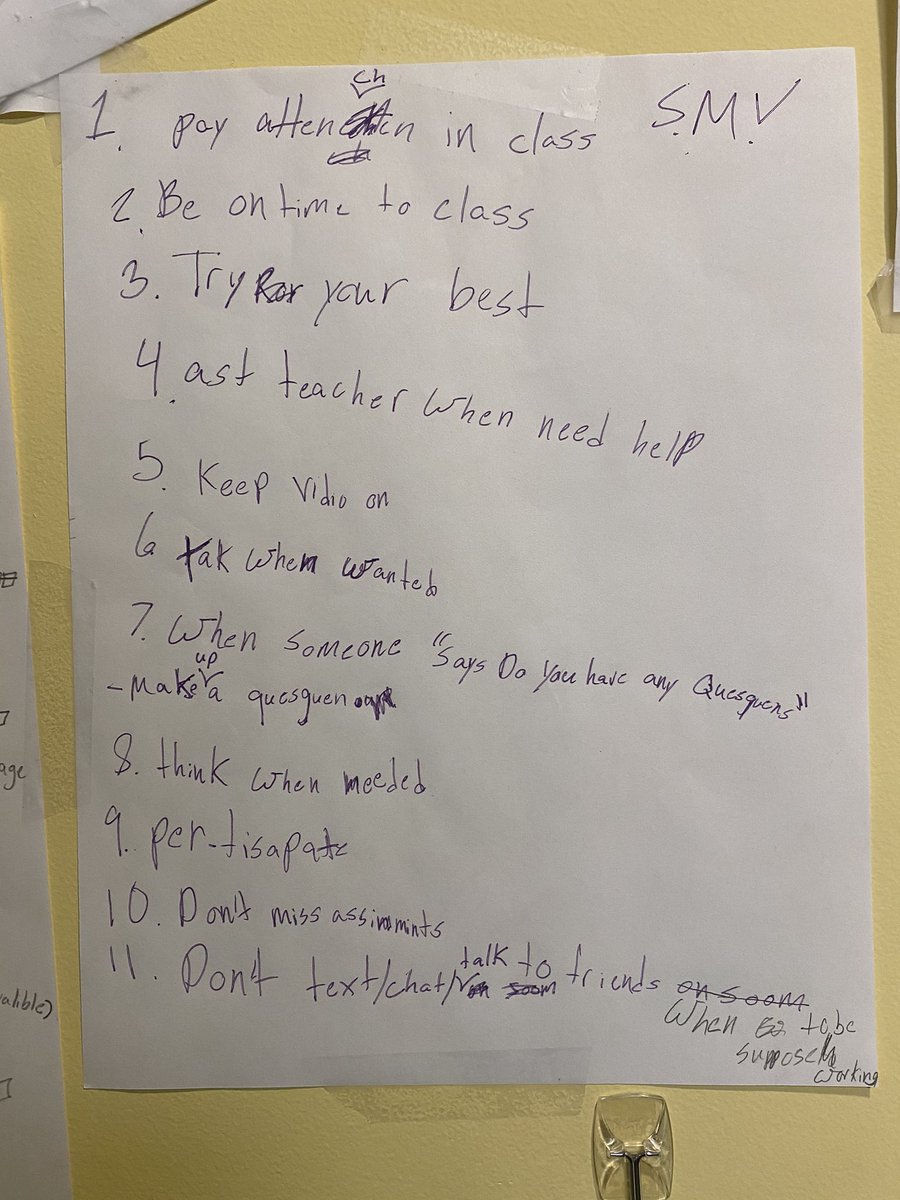 1. pay attenchen in class S.M.V
2. Be on time to class
3. Try your best
4. ast teacher when need help
5. Keep vidio on
6 tak when wanted
7. When someone "says Do you have any Quesquens"
- Make up a quesguen
8. think when meeded
9. per-tisapate
10. Don't miss assinmints
11. Don't text/chat/talk to friends on soom
When to be
suppose
working
age
alible)